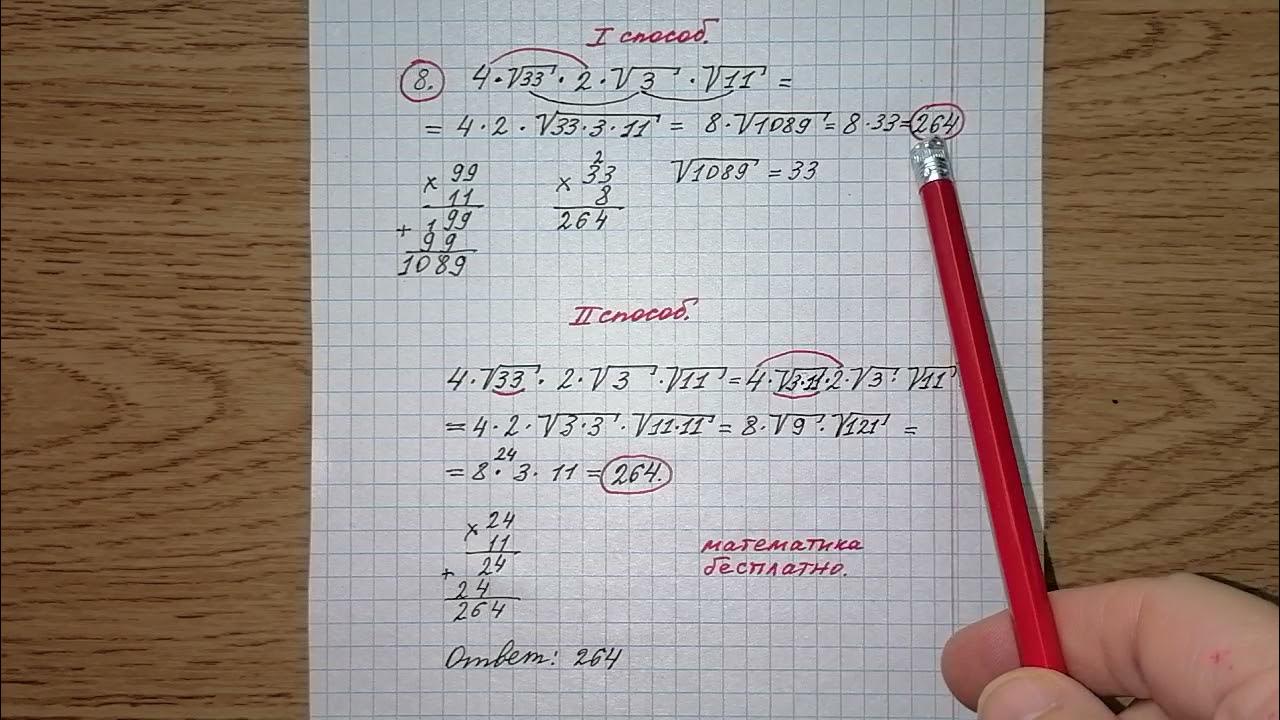 I способ.
8. 4·√33·2·√3·√11=
=4·2·√33·3·11=8·√1089=8·33=264
√1089=33
×99
11
+199
99
1089
2
×33
8
264
II способ.
4·√33·2·√3·√11=4·√3·11·2·√3·√11
=4·2·√3·3·√11·11=8·√9·√121=
24
=8·3·11=264.
×24
11
+24
24
264
математика
бесплатно.
Ответ: 264